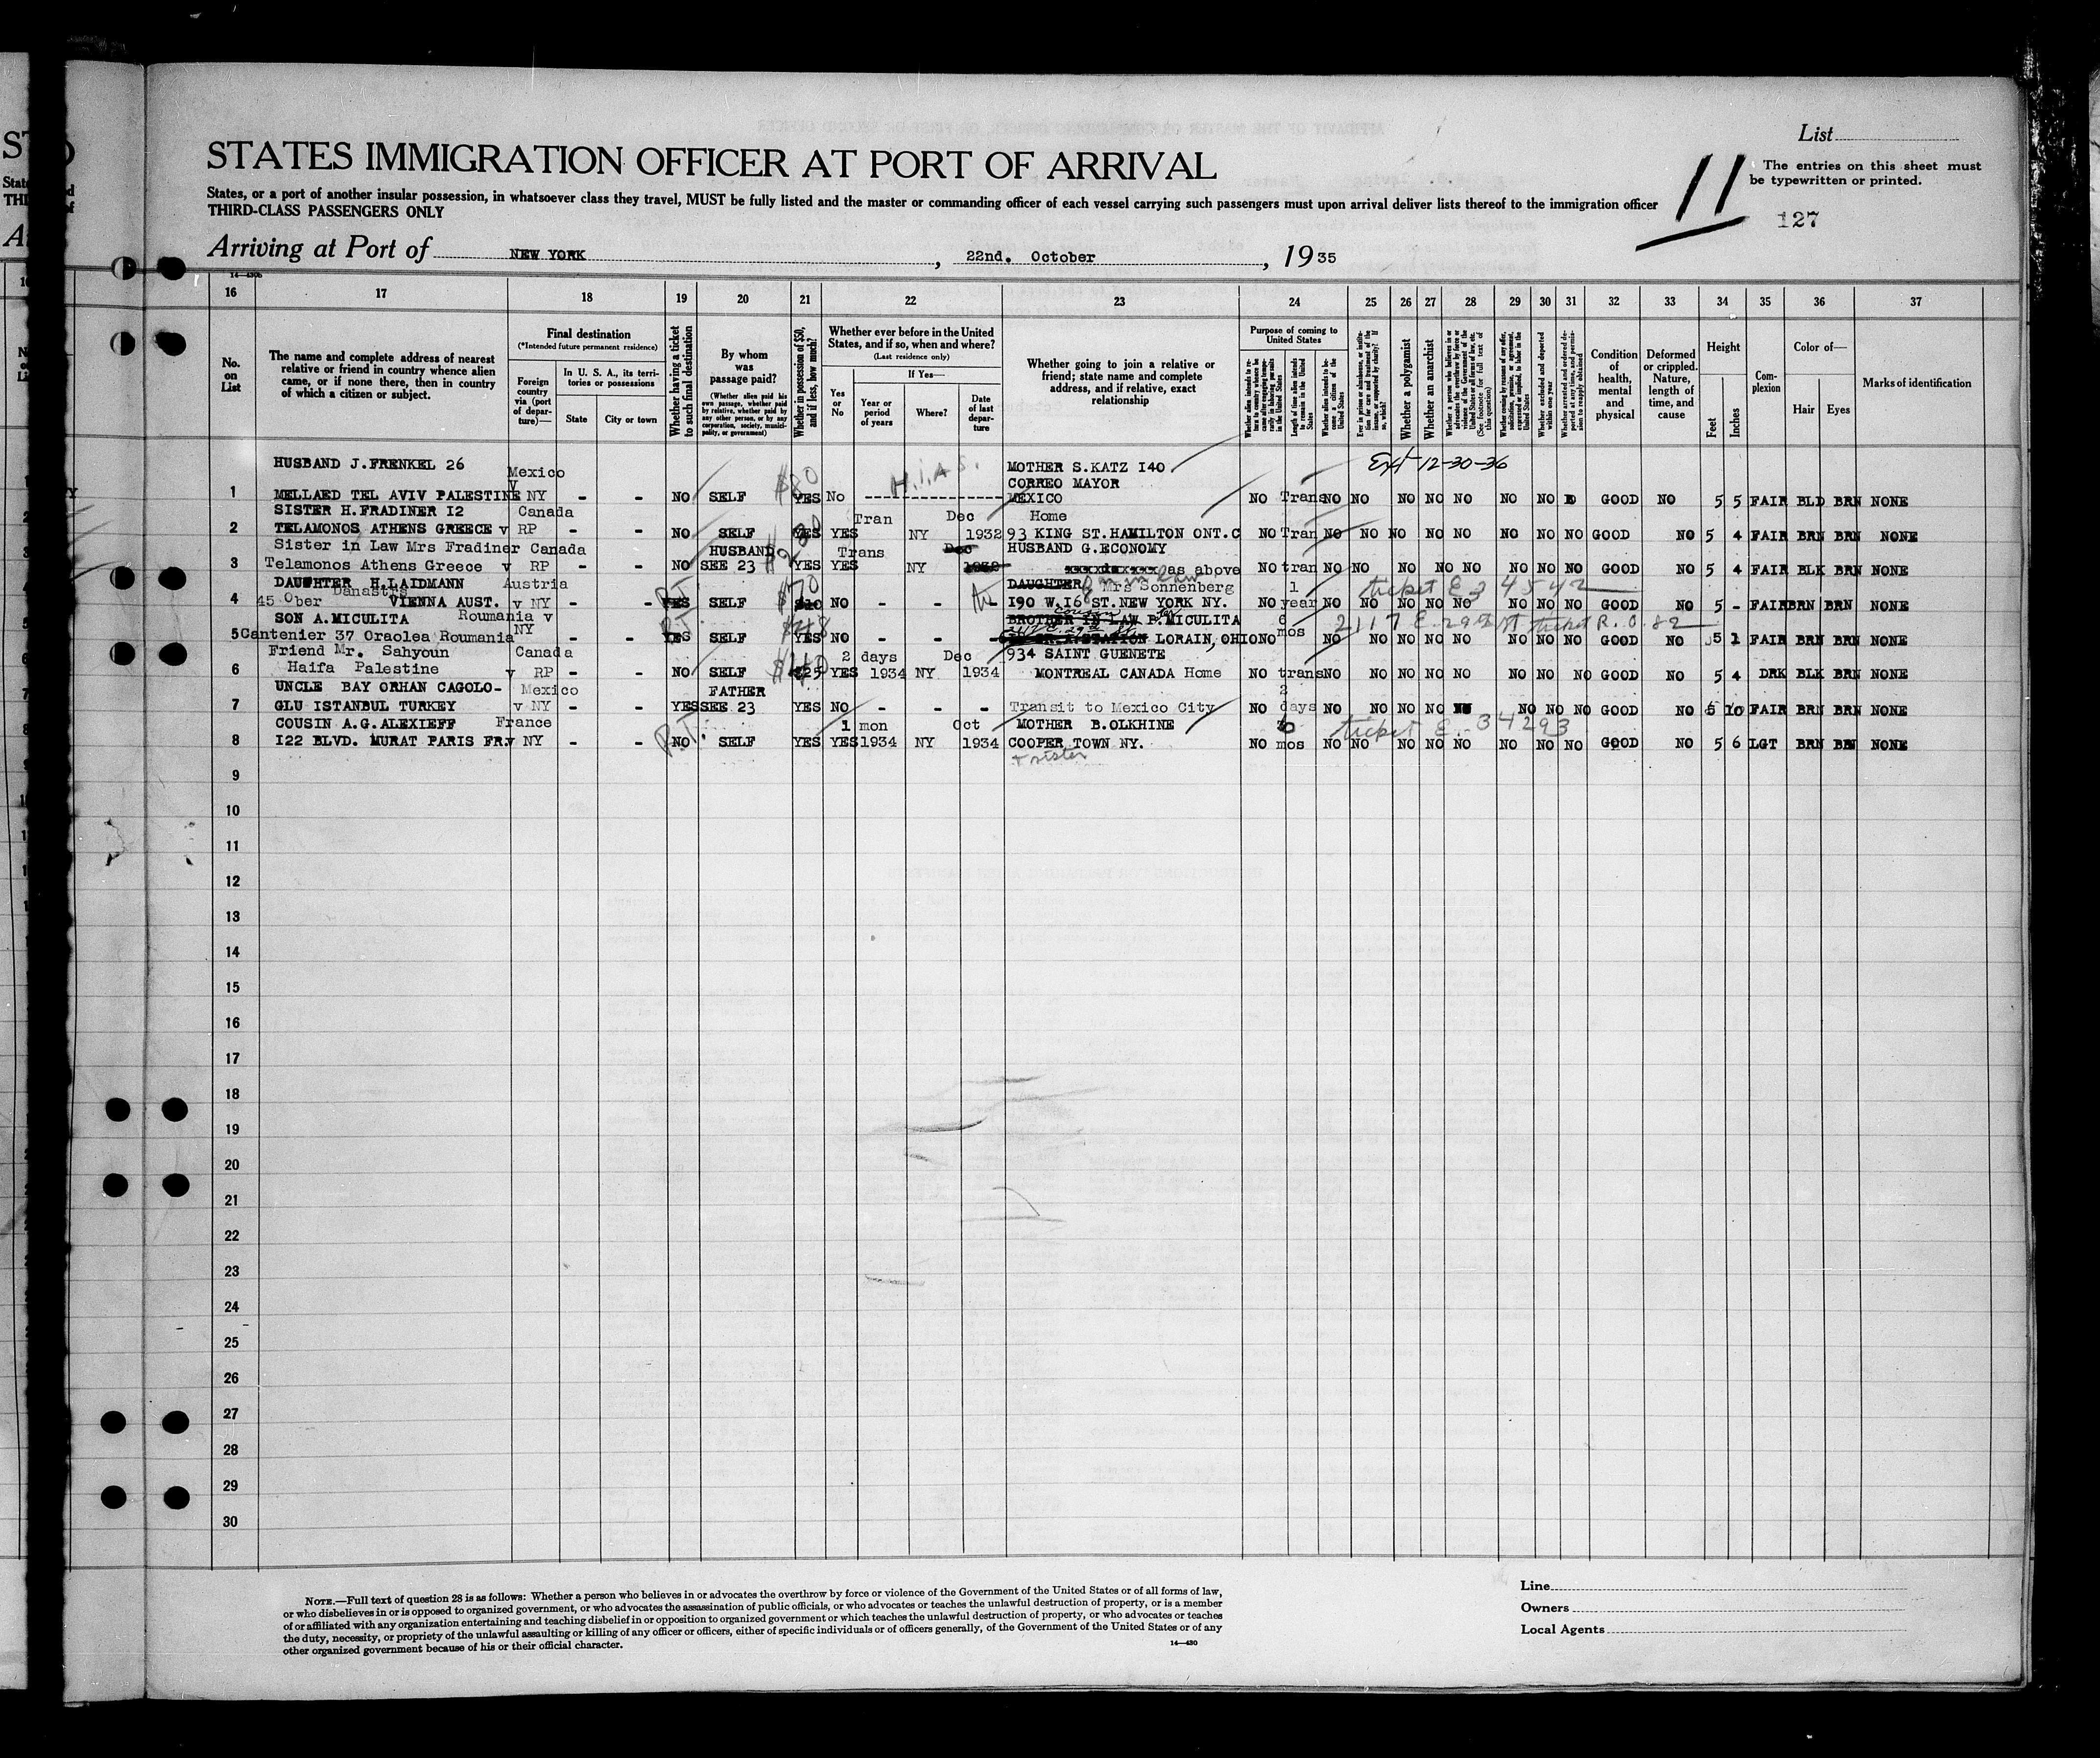 List
STATES IMMIGRATION OFFICER AT PORT OF ARRIVAL
11
The entries on this sheet must
be typewritten or printed.
States, or a port of another insular possession, in whatsoever class they travel, MUST be fully listed and the master or commanding officer of each vessel carrying such passengers must upon arrival deliver lists thereof to the immigration officer
THIRD-CLASS PASSENGERS ONLY
127
Arriving at Port of NEW YORK, 22nd. October, 1935
16 17 18 19 20 21 22 23 24 25 26 27 28 29 30 31 32 33 34 35 36 37
No. on List
The name and complete address of nearest
relative or friend in country whence alien
came, or if none there, then in country
of which a citizen or subject.
Final destination
(*Intended future permanent residence)
Foreign country via (port of departure)—
In U. S. A., its territories or possessions
State
City or town
Whether having a ticket to such final destination
By whom was passage paid?
(Whether alien paid his own passage, whether paid by relative, whether paid by any other person, or by any corporation, society, municipality, or government)
Whether in possession of $50, and if less, how much?
Whether ever before in the United States, and if so, when and where?
(Last residence only)
Yes or No
If Yes—
Year or period of years
Where?
Date of last departure
Whether going to join a relative or
friend; state name and complete
address, and if relative, exact
relationship
Purpose of coming to United States
Whether a polygamist
Whether an anarchist
Condition of health, mental and physical
Deformed or crippled. Nature, length of time, and cause
Height
Feet
Inches
Complexion
Color of—
Hair
Eyes
Marks of identification
HUSBAND J.FRENKEL 26 Mexico $80 H.I.A.S. MOTHER S.KATZ I40 Ext-12-30-36
CORREO MAYOR
1 MELLAED TEL AVIV PALESTINE v NY - - NO SELF YES No MEXICO NO Trans NO NO NO NO NO NO NO GOOD NO 5 5 FAIR BLD BRN NONE
SISTER H.FRADINER I2 Canada Tran Dec Home
2 TELAMONOS ATHENS GREECE v RP - - NO SELF YES YES NY 1932 93 KING ST.HAMILTON ONT.C NO Tran NO NO NO NO NO NO NO NO GOOD NO 5 4 FAIR BRN BRN NONE
Sister in Law Mrs Fradiner Canada HUSBAND Trans Dec HUSBAND G.ECONOMY
3 Telamonos Athens Greece v RP - - NO SEE 23 YES YES NY as above NO tran NO NO NO NO NO NO NO NO GOOD NO 5 4 FAIR BLK BRN NONE
DAUGHTER H.LAIDMANN Austria R.T. $70 DAUGHTER Mrs Sonnenberg 1 ticket E 34542
4 45 Ober Danastrs VIENNA AUST. v NY - - YES SELF $10 NO - - I90 W.I6 ST.NEW YORK NY. NO year NO NO NO NO NO NO NO NO GOOD NO 5 - FAIR BRN BRN NONE
SON A.MICULITA Roumania v NY R.T. $48 cousin BROTHER IN LAW P.MICULITA 6 mos 2117 E. 29th St ticket R.O. 82
5 Cantenier 37 Oraolea Roumania - - YES SELF YES NO - - STATION LORAIN, OHIO NO NO NO NO NO NO NO NO NO GOOD NO 5 1 FAIR BRN BRN NONE
Friend Mr. Sahyoun Canada 2 days Dec 934 SAINT GUENETE
6 Haifa Palestine v RP - - NO SELF YES 1934 NY 1934 MONTREAL CANADA Home NO trans NO NO NO NO NO NO NO NO GOOD NO 5 4 DRK BLK BRN NONE
UNCLE BAY ORHAN CAGOLO- Mexico FATHER 2
7 GLU ISTANBUL TURKEY v NY - - YES SEE 23 YES NO - - - Transit to Mexico City NO days NO NO NO NO NO NO NO NO GOOD NO 5 10 FAIR BRN BRN NONE
COUSIN A.G.ALEXIEFF France R.T. 1 mon Oct MOTHER B.OLKHINE 6 ticket E. 34293
8 I22 BLVD. MURAT PARIS FR. v NY - - NO SELF YES YES 1934 NY 1934 COOPER TOWN NY. NO mos NO NO NO NO NO NO NO NO GOOD NO 5 6 LGT BRN BRN NONE
+ sister
9
10
11
12
13
14
15
16
17
18
19
20
21
22
23
24
25
26
27
28
29
30
NOTE.—Full text of question 28 is as follows: Whether a person who believes in or advocates the overthrow by force or violence of the Government of the United States or of all forms of law,
or who disbelieves in or is opposed to organized government, or who advocates the assassination of public officials, or who advocates or teaches the unlawful destruction of property, or is a member
of or affiliated with any organization entertaining and teaching disbelief in or opposition to organized government or which teaches the unlawful destruction of property, or who advocates or teaches
the duty, necessity, or propriety of the unlawful assaulting or killing of any officer or officers, either of specific individuals or of officers generally, of the Government of the United States or of any
other organized government because of his or their official character.
14—430
Line
Owners
Local Agents